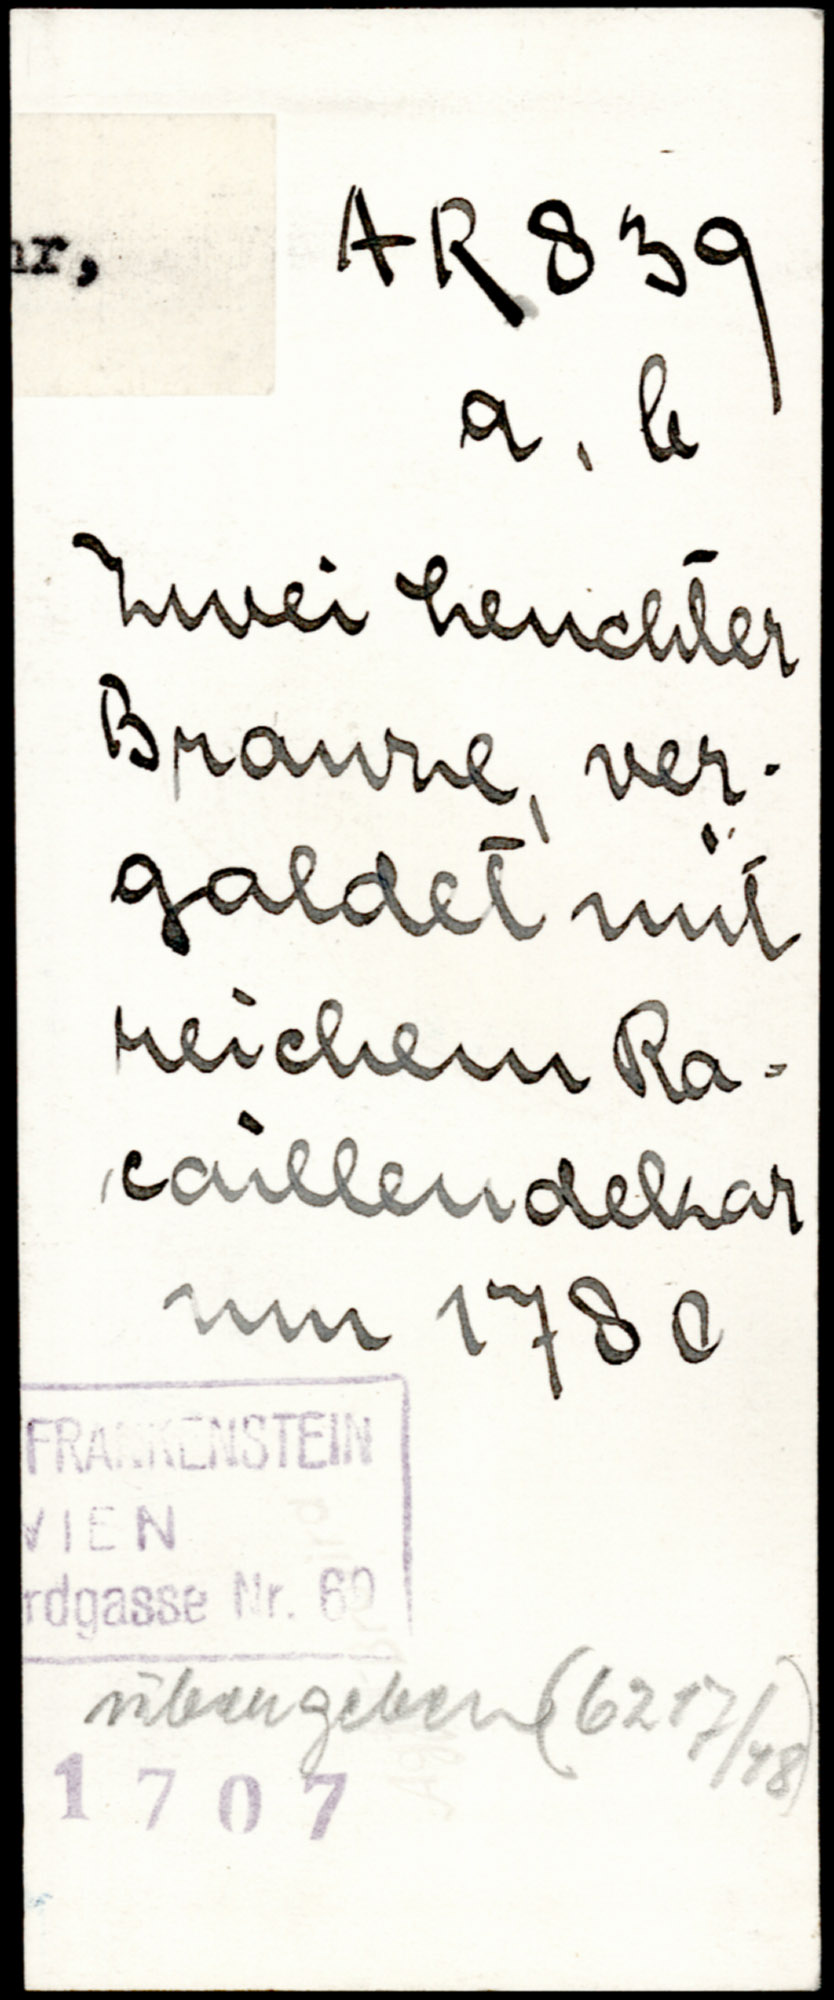 nr,
AR 839
a, b
Zwei Leuchter
Bronze, ver-
goldet mit
reichem Ro-
caillendekor
um 1780
FRANKENSTEIN
WIEN
rdgasse Nr. 69
übergeben (6217/48)
1707